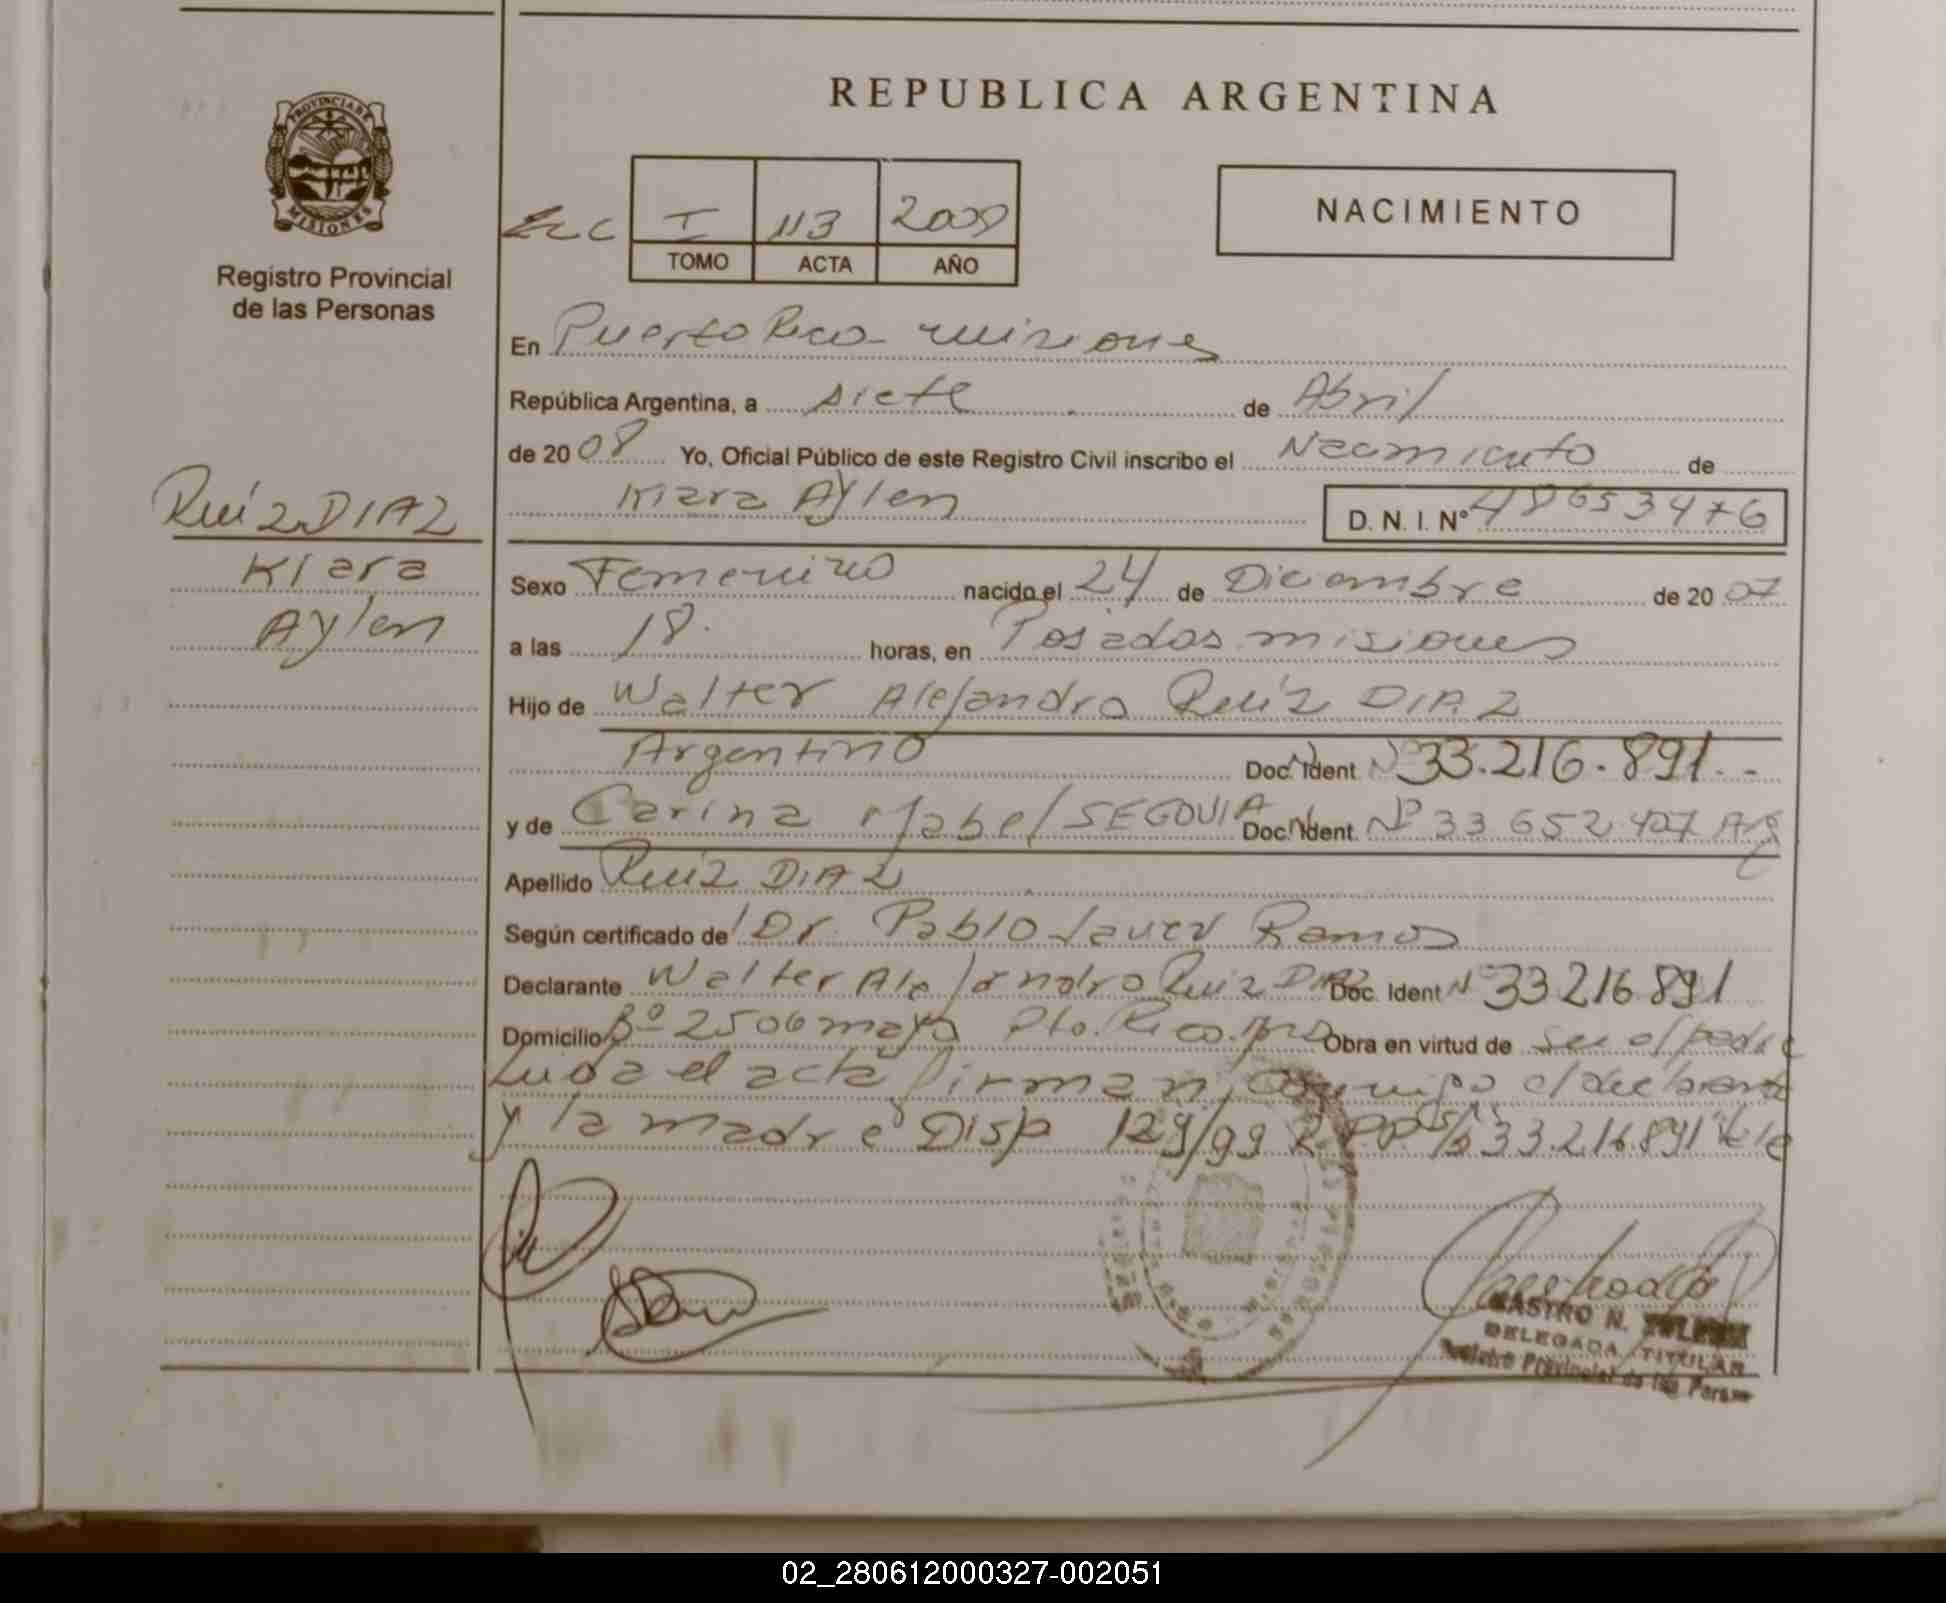 REPUBLICA ARGENTINA
PROVINCIA DE MISIONES
Registro Provincial
de las Personas
I 113 2008
TOMO ACTA AÑO
NACIMIENTO
En Puerto Rico - misiones
República Argentina, a siete de Abril
de 20 08 Yo, Oficial Público de este Registro Civil inscribo el Nacimiento de
Kiara Aylen D. N. I. Nº 48653476
Ruíz DIAZ
Kiara
Aylen
Sexo Femenino nacido el 24 de Diciembre de 20 07
a las 18. horas, en Posadas misiones
Hijo de Walter Alejandro Ruíz DIAZ
Argentino Doc. Ident. Nº 33.216.891.-
y de Carina Mabel SEGOVIA Doc. Ident. Nº 33 652 427 Arg
Apellido Ruiz DIAZ
Según certificado de Dr. Pablo Javier Ramos
Declarante Walter Alejandro Ruiz DIAZ Doc. Ident Nº 33 216 891
Domicilio Bº 25 de mayo Pto. Rico. Mnes Obra en virtud de ser el padre
Leida el acta firman conmigo el declarante
y la madre Disp 129/99 R.P.P. S/b 33.216.891 Vale
CASTRO N.
DELEGADA TITULAR
Registro Provincial de las Personas
02_280612000327-002051